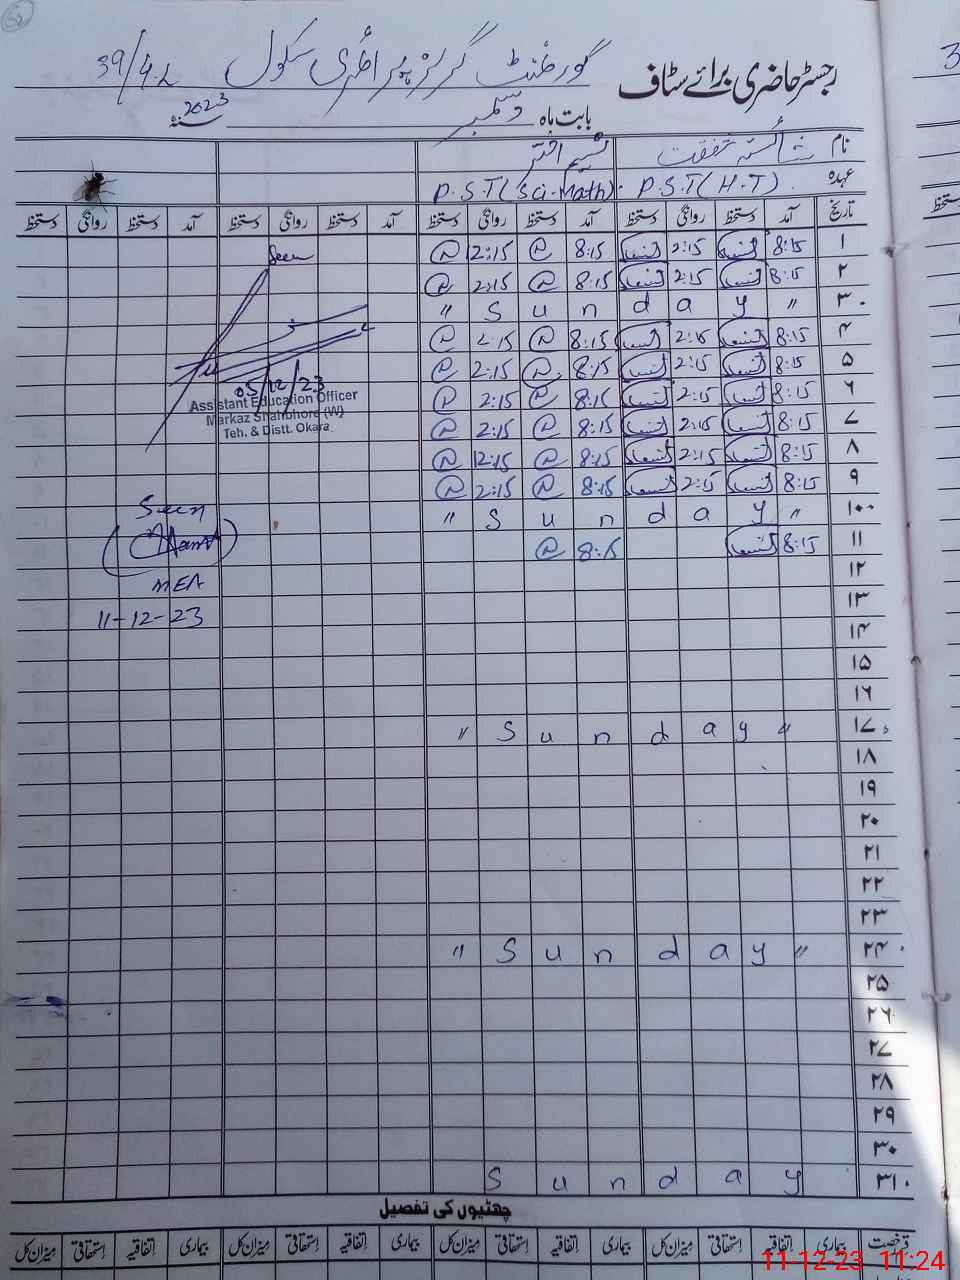 رجسٹر حاضری برائے سٹاف گورنمنٹ گرلز پرائمری سکول 39/4.L
بابت ماہ دسمبر 2023 سنہ
نام شائستہ شفقت نسیم اختر
عہدہ P.S.T (H.T). P.S.T (Sci-Math).
تاریخ آمد دستخط روانگی دستخط آمد دستخط روانگی دستخط آمد دستخط روانگی دستخط آمد دستخط روانگی دستخط
۱ 8:15 2:15 8:15 12:15 Seen
۲ 8:15 2:15 8:15 2:15
۳ " S u n d a y "
۴ 8:15 2:15 8:15 2:15
۵ 8:15 2:15 8:15 2:15
05/12/23
۶ 8:15 2:15 8:15 2:15
Assistant Education Officer
Markaz Shahbhore (W)
Teh. & Distt. Okara
۷ 8:15 2:15 8:15 2:15
۸ 8:15 2:15 8:15 12:15
۹ 8:15 2:15 8:15 2:15
۱۰ " S u n d a y "
Seen
۱۱ 8:15 8:15
۱۲
MEA
۱۳
11-12-23
۱۴
۱۵
۱۶
۱۷ " S u n d a y "
۱۸
۱۹
۲۰
۲۱
۲۲
۲۳
۲۴ " S u n d a y "
۲۵
۲۶
۲۷
۲۸
۲۹
۳۰
۳۱ S u n d a y
چھٹیوں کی تفصیل
رخصت بیماری اتفاقیہ استحقاقی میزان کل بیماری اتفاقیہ استحقاقی میزان کل بیماری اتفاقیہ استحقاقی میزان کل بیماری اتفاقیہ استحقاقی میزان کل
11-12-23 11:24